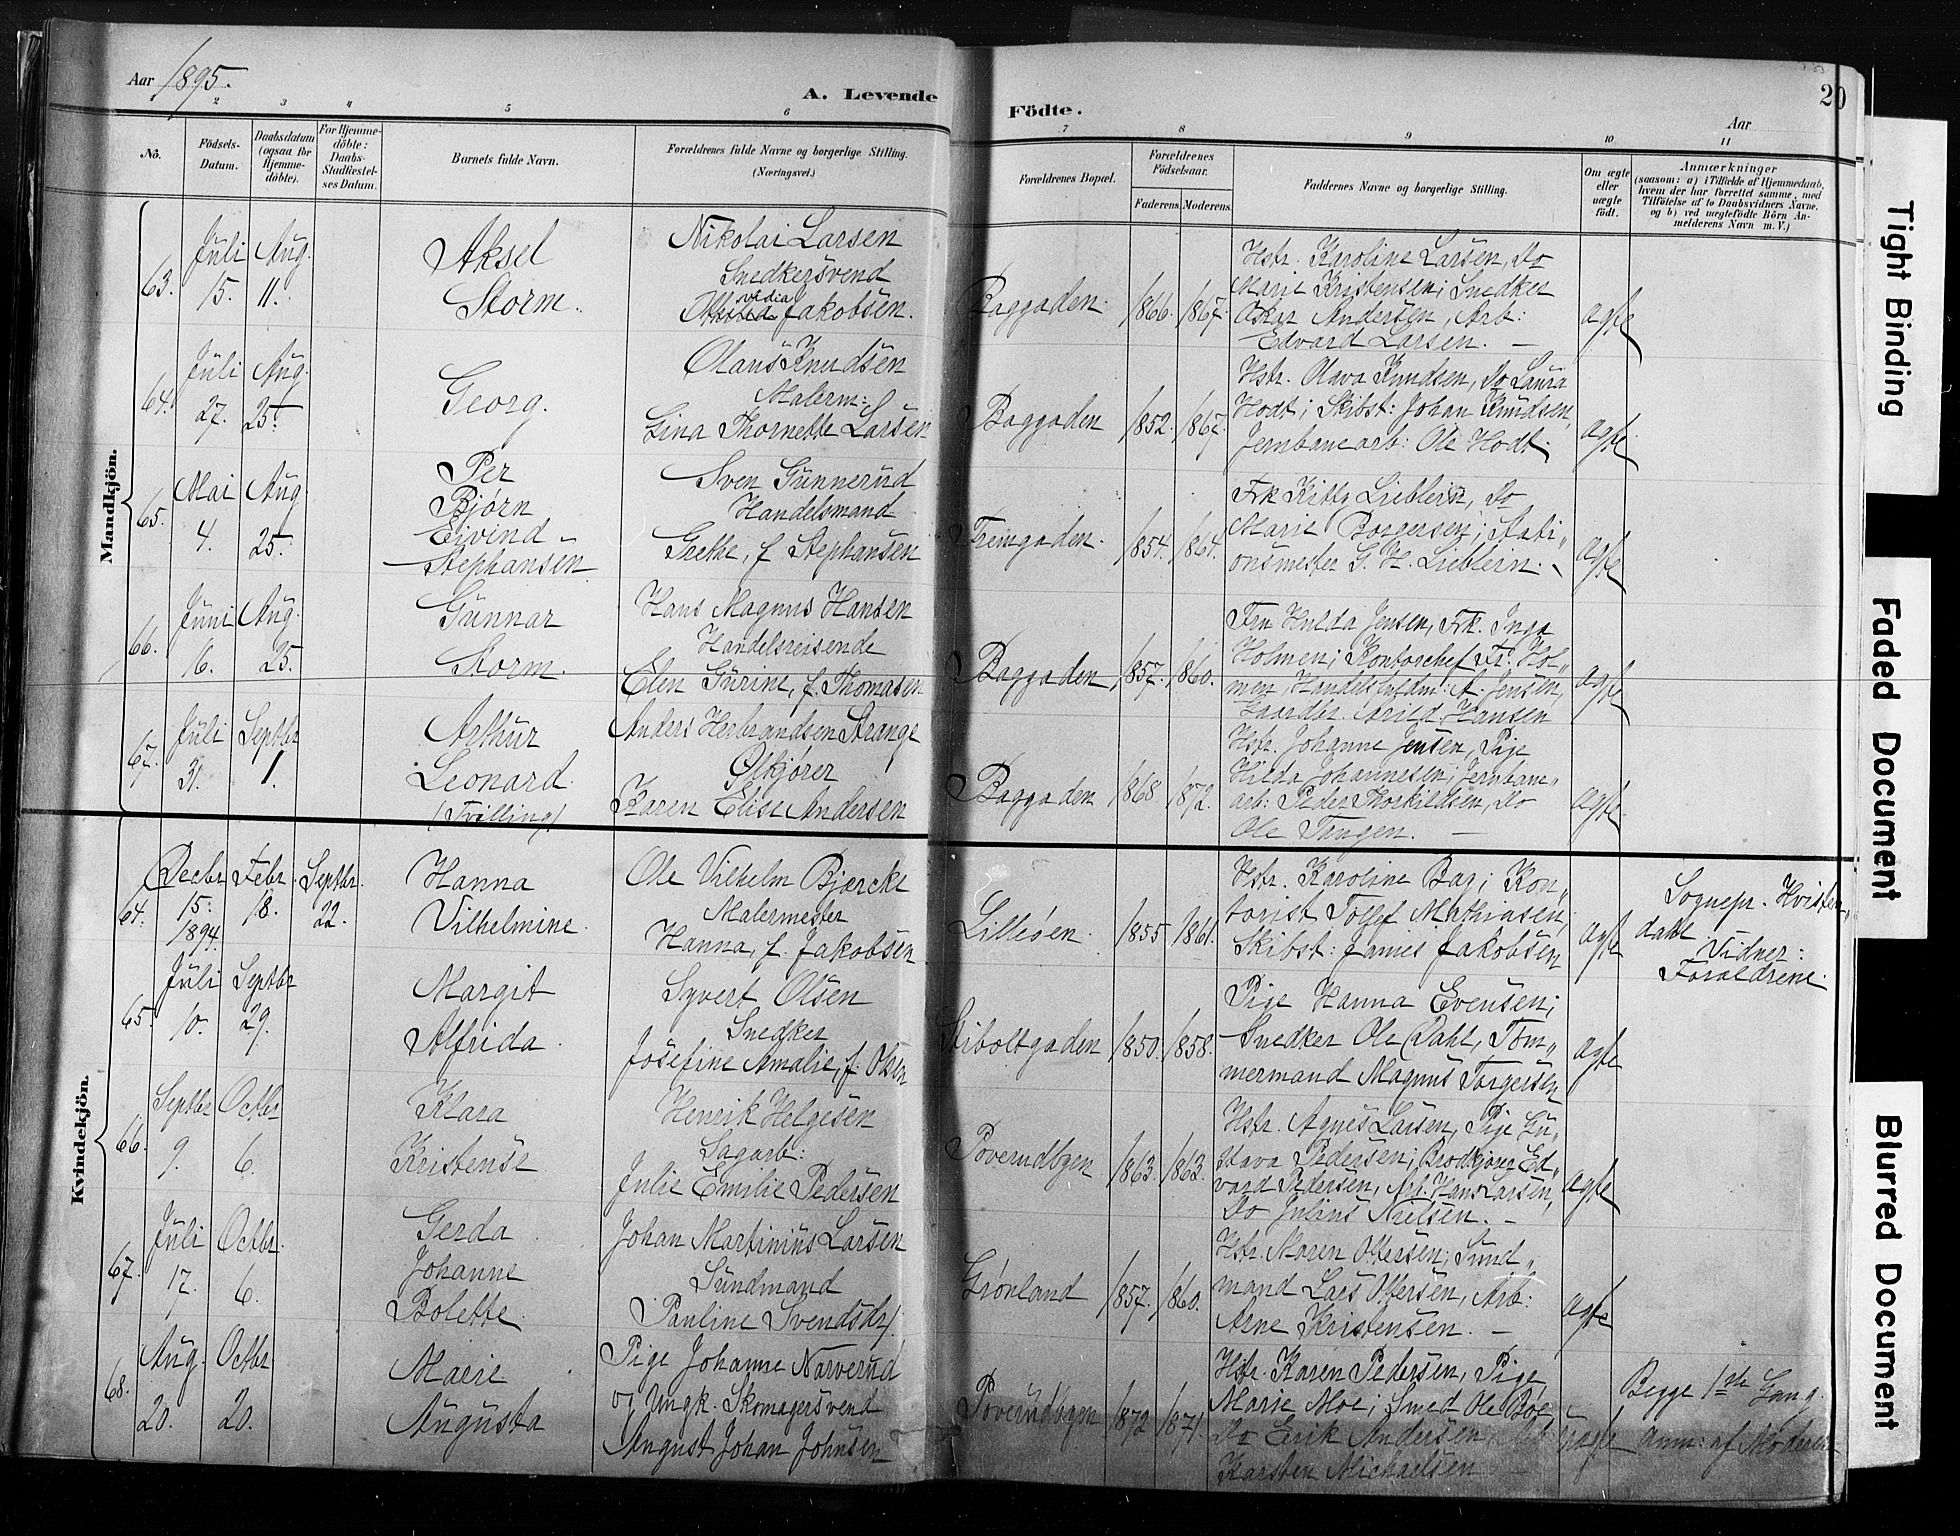 Aar 1895.
A. Levende
Födte.
Aar
20
1 2 3 4 5 6 7 8 9 10 11
No.
Födsels-Datum.
Daabsdatum (ogsaa for Hjemme-döbte).
For Hjemme-döbte: Daabs-Stadfæstel-ses Datum.
Barnets fulde Navn.
Forældrenes fulde Navne og borgerlige Stilling.
(Næringsvei.)
Forældrenes Bopæl.
Forældrenes Födselsaar.
Faderens. Moderens.
Faddernes Navne og borgerlige Stilling.
Om ægte eller uægte födt.
Anmærkninger
(saasom: a) i Tilfælde af Hjemmedaab,
hvem der har forrettet samme, med
Tilföielse af to Daabsvidners Navne.
og b) ved uægtefödte Börn An-
melderens Navn m. V.)
Mandkjön.
63.
Juli 15.
Aug. 11.
Aksel
Storm.
Nikolai Larsen
Snedkersvend
Jakobsen.
Baggaden.
1866.
1867.
Hstr. Karoline Larsen, Do
Marie Kristensen; Snedker
Oskar Andersen, Arb:
Edvard Larsen. —
ægte
64.
Juli 27.
Aug. 25.
Georg.
Olaus Knudsen
Malerm:
Gina Thornette Larsen
Baggaden
1852.
1867.
Hstr. Olava Knudsen, Do Laura
Hodt; Skibst: Johan Knudsen,
Jernbanearb: Ole Hodt.
ægte
65.
Mai 4.
Aug 25.
Per
Bjørn
Eivind
Stephansen
Sven Gunnerud
Handelsmand
Grethe, f. Stephansen
Fremgaden.
1854.
1864.
Frk Kitty Lieblein, Do
Marie Borgersen; Stati„
onsmester G. H. Lieblein.
ægte
66.
Juni 16.
Aug. 25.
Gunnar
Storm.
Hans Magnus Hansen
Handelsreisende
Elen Gurine, f. Thomasen
Baggaden
1857.
1860.
Fru Hulda Jensen, Frk. Inga
Holmen; Kontorchef Fr. Hol„
men, Handelsfuldm: A. Jensen,
Gaardbr. Arild Hansen
ægte
67.
Juli 31.
Septbr 1.
Arthur
Leonard.
(Tvilling)
Anders Herbrandsen Strange
Ølkjører
Karen Elise Andersen
Baggaden
1868
1872.
Hstr. Johanne Jensen, Pige
Hilda Johannesen; Jernbane„
arb: Peder Thorkildsen, Do
Ole Tangen. —
ægte
Kvindekjön.
64.
Decbr 15. 1894.
Febr 18.
Septbr. 22.
Hanna
Vilhelmine.
Ole Vilhelm Bjærcke
Malermester
Hanna, f. Jakobsen
Lilleøen.
1855
1861.
Hstr. Karoline Bag; Kon„
torist Tollef Mathiasen;
Skibst: James Jakobsen
ægte
Sognepr. Hvisten„
dahl
Vidner:
Forældrene.
65.
Juli 10.
Septbr 29.
Margit
Alfrida.
Syvert Olsen
Snedker
Josefine Amalie, f. Olsen
Stiboltgaden
1850.
1858.
Pige Hanna Evensen;
Snedker Ole Dahl, Töm„
mermand Magnus Torgersen
ægte
66.
Septbr 9.
Octbr 6.
Klara
Kristense
Henrik Helgesen
Sagarb:
Julie Emilie Pedersen
Poverudbyen
1863.
1863.
Hstr. Agnes Larsen, Pige Gu„
stava Pedersen; Brødkjører Ed„
vard Pedersen, Arb. Hans Larsen,
Do Julius Nielsen. —
ægte
67.
Juli 17.
Octbr. 6.
Gerda
Johanne
Bolette.
Johan Martinius Larsen
Sundmand
Pauline Svendsdr.
Grønland
1857.
1860.
Hstr. Maren Ottersen; Sund„
mand Lars Ottersen, Arb:
Arne Kristensen. —
ægte
68.
Aug. 20.
Octbr 20.
Marie
Augusta
Pige Johanne Narverud
og Ungk. Skomagersvend
August Johan Johnsen
Poverudbyen
1872
1871.
Hstr. Karen Pedersen, Pige
Marie Moe; Smed Ole Boe,
Do Erik Andersen,
Karsten Michaelsen —
uægte
Begge 1ste Gang.
Anm: af Moderen
Tight Binding
Faded Document
Blurred Document